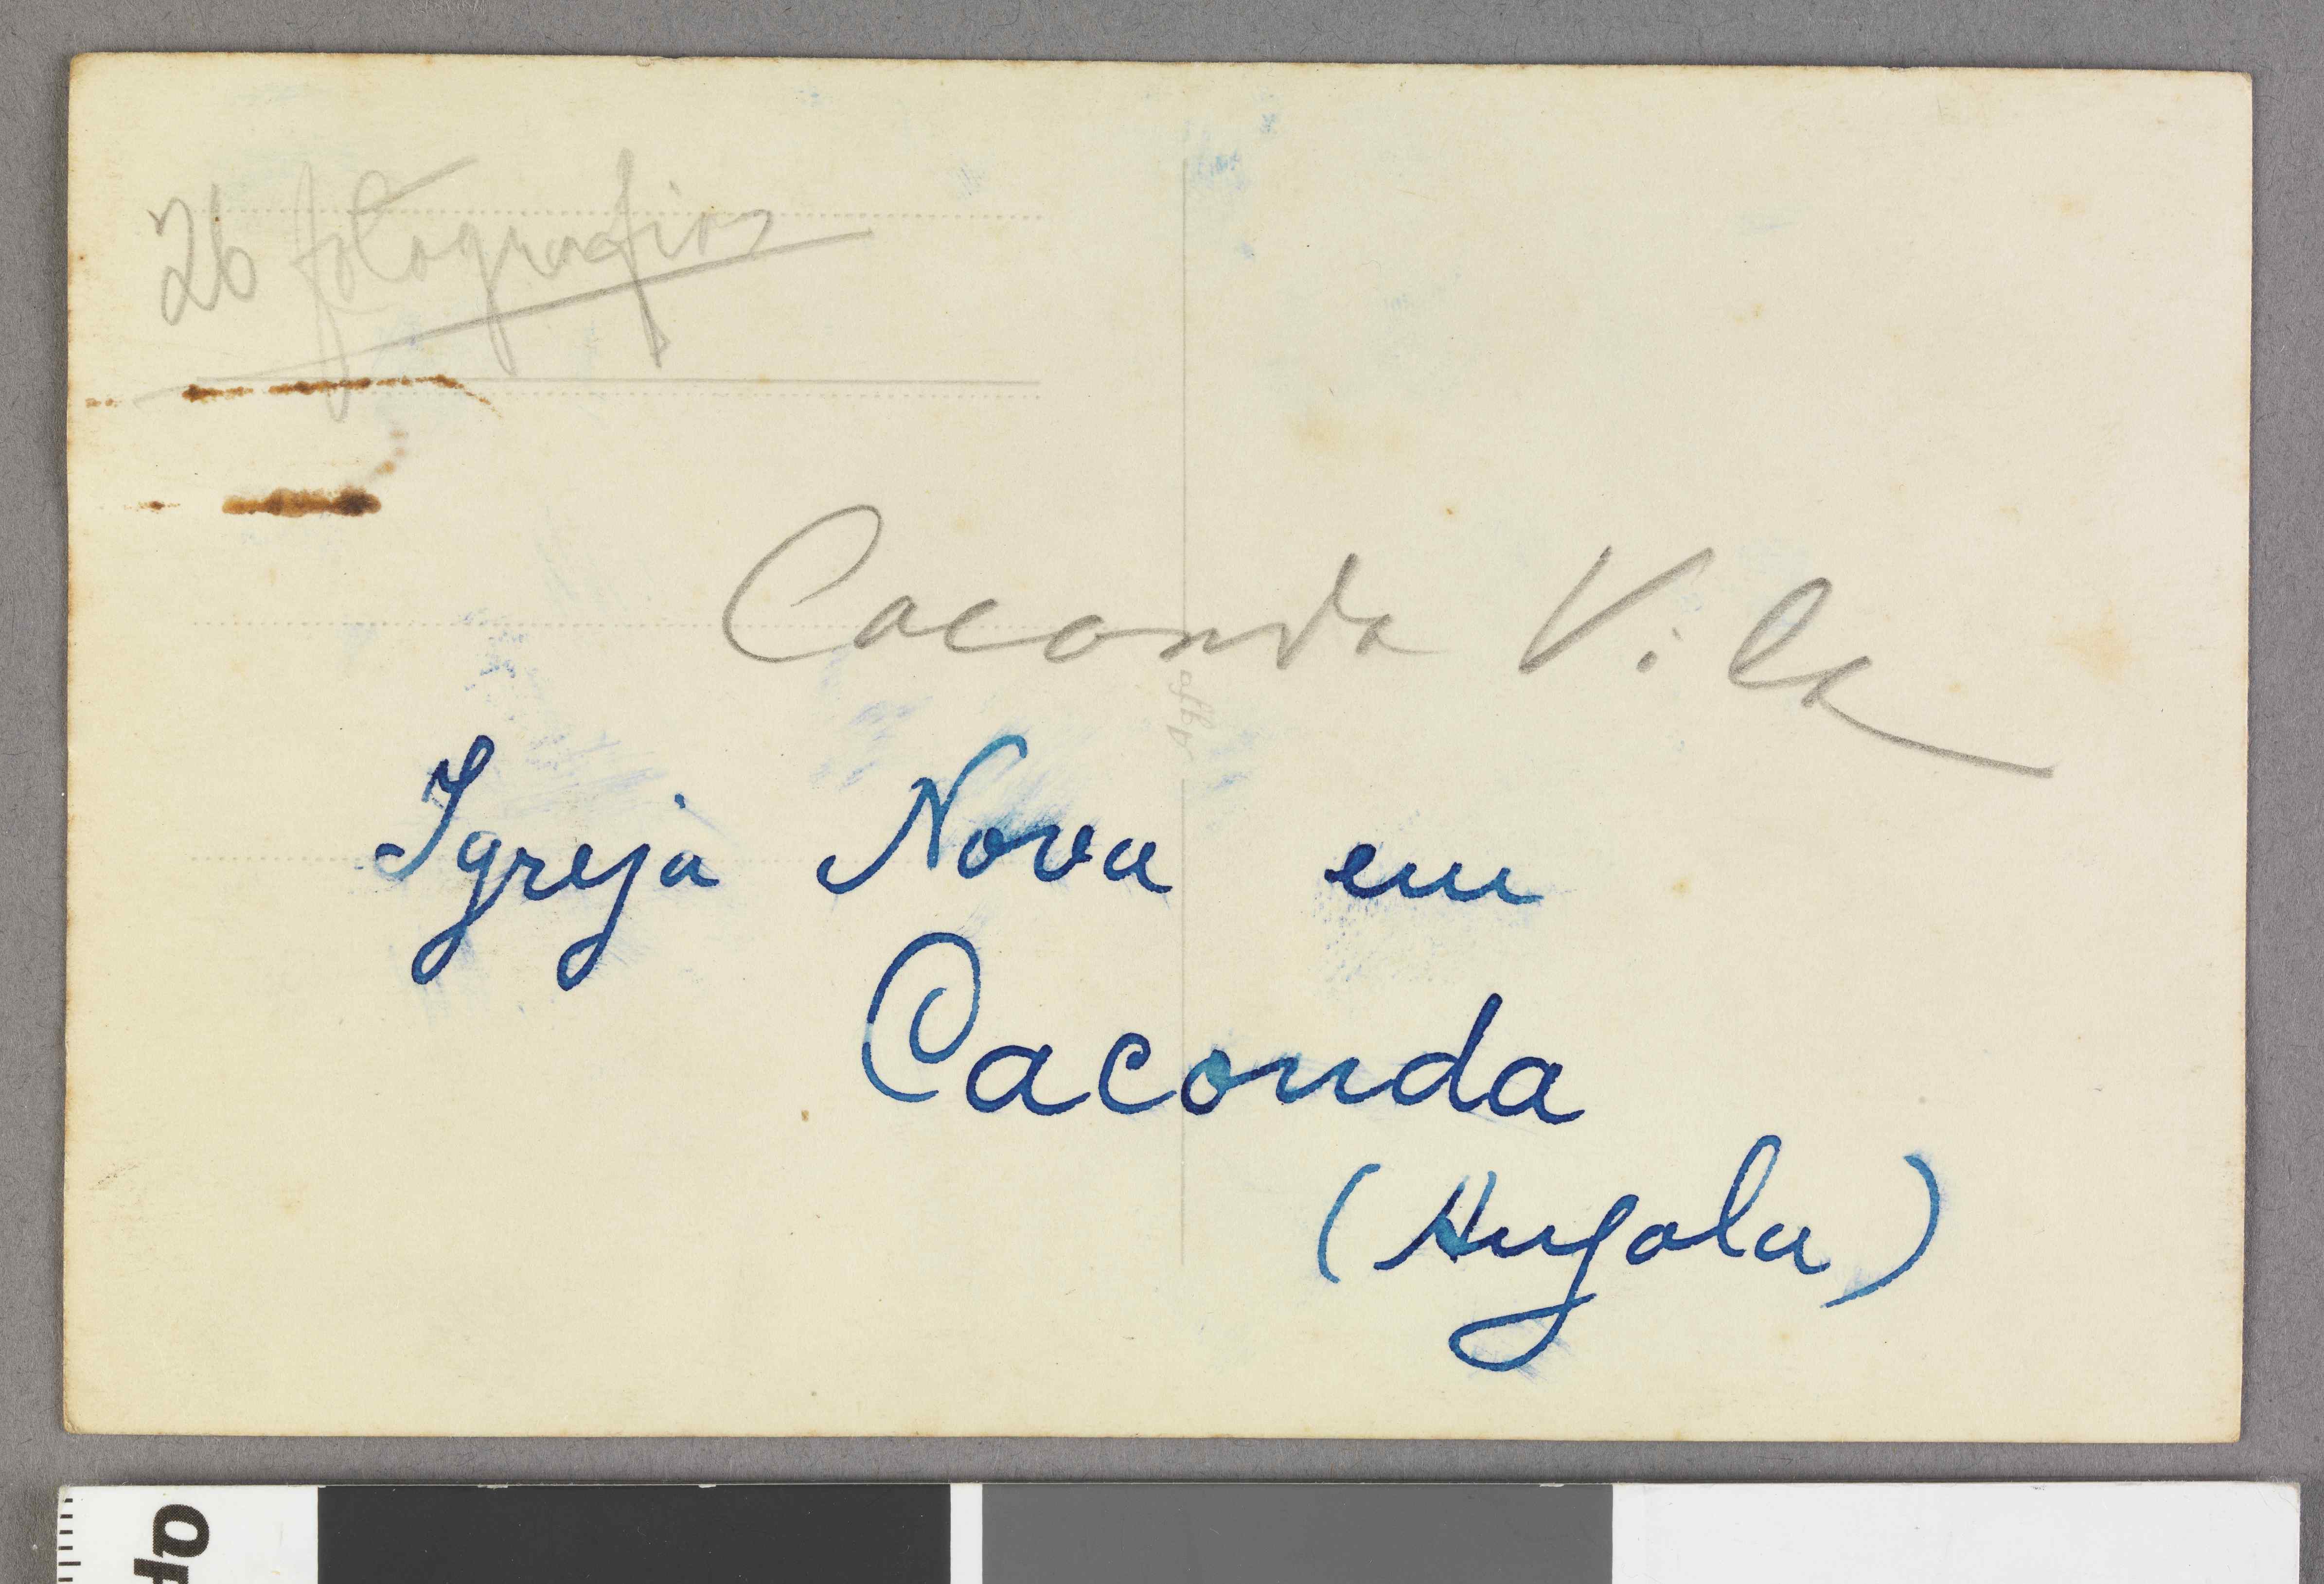 26 fotografias
Caconda Vila
Igreja Nova em
Caconda
(Angola)